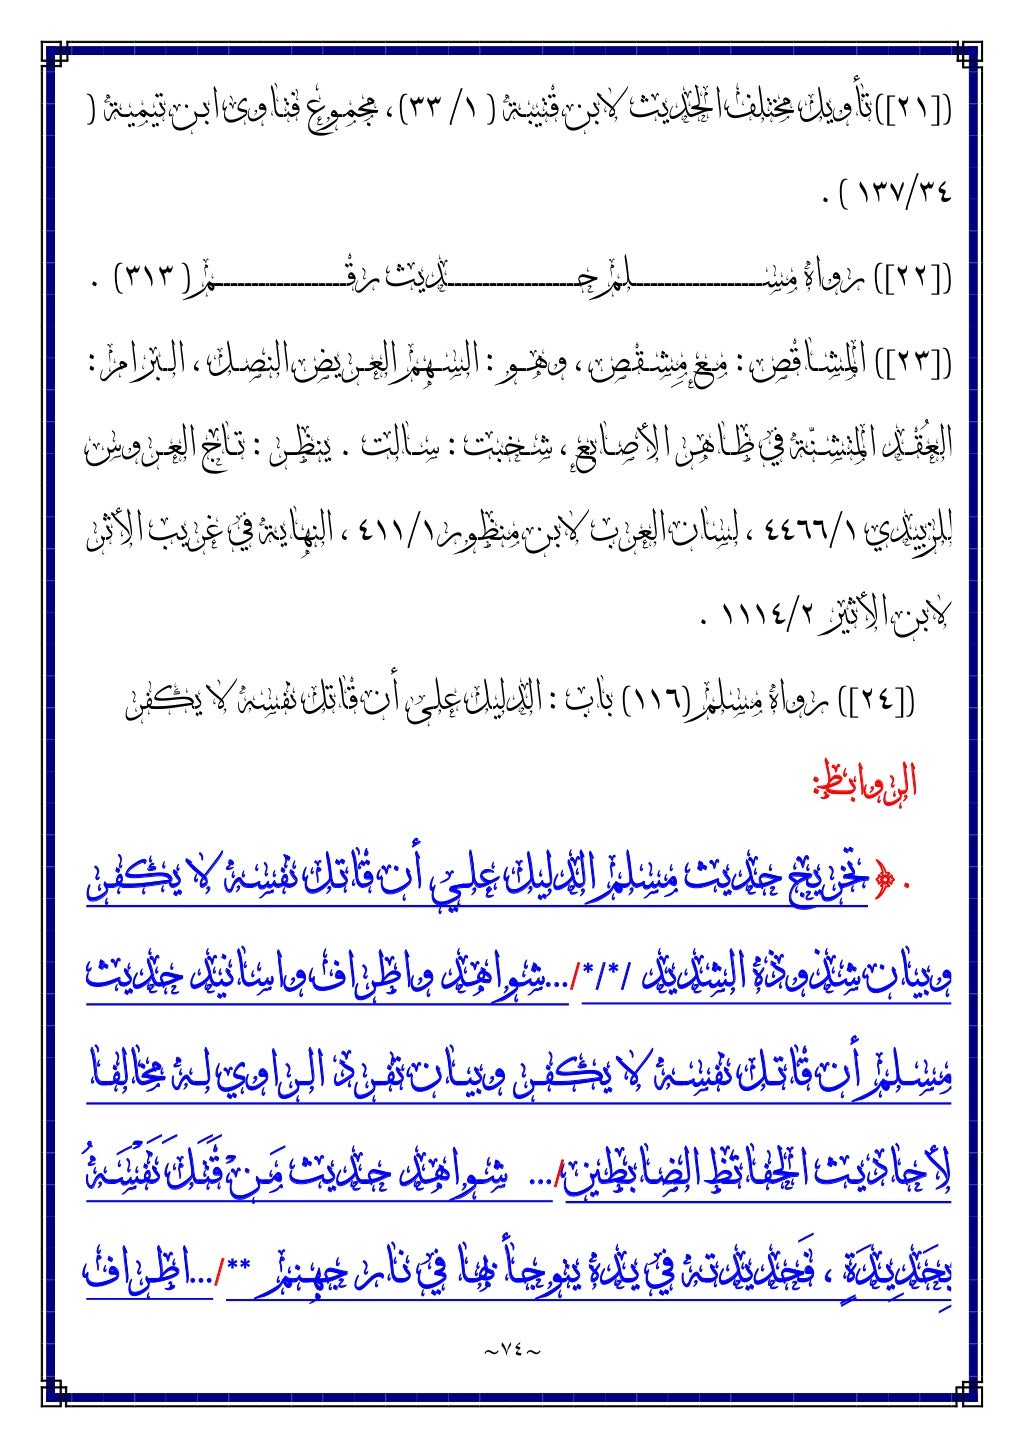 ([٢١]) تأويل مختلف الحديث لابن قتيبة ( ١/ ٣٣) ، مجموع فتاوى ابن تيمية (
١٣٧/٣٤ ) .
([٢٢]) رواه مســـــــلم حـــــــديث رقـــــــم ( ٣١٣) .
([٢٣]) المشاقص : مع مِشقص ، وهو : السهم العريض النصل ، البرام :
العُقد المتشنّة في ظاهر الأصابع ، شخبت : سالت . ينظر : تاج العروس
للزبيدي ٤٤٦٦/١ ، لسان العرب لابن منظور ٤١١/١ ، النهاية في غريب الأثر
لابن الأثير ١١١٤/٢ .
([٢٤]) رواه مسلم (١١٦) باب : الدليل على أن قاتل نفسه لا يكفر
الروابط:
. ﴿ تخريج حديث مسلم الدليل علي أن قاتل نفسه لا يكفر
وبيان شذوذه الشديد /*/*/...شواهد واطراف واسانيد حديث
مسلم أن قاتل نفسه لا يكفر وبيان تفرد الراوي له مخالفا
لأحاديث الحفاتظ الضابطين/... شواهد حديث مَن ْقَتَلَ نَفْسَهُ
بِحَدِيدَةٍ ، فَحديدته في يده يتوجأ بها في نار جهنم **/...اطراف
~٧٤~